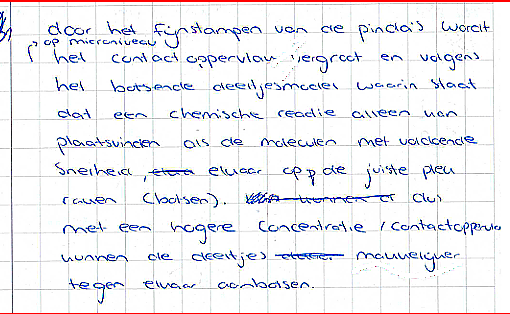 door het fijnstampen van de pinda's wordt
op microniveau
het contactoppervlak vergroot en volgens
het botsende deeltjesmodel waarin staat
dat een chemische reactie alleen kan
plaatsvinden als de moleculen met voldoende
snelheid, elkaar op de juiste plek
raken (botsen). dus
met een hogere concentratie / contactoppervla
kunnen de deeltjes makkelijker
tegen elkaar aanbotsen.